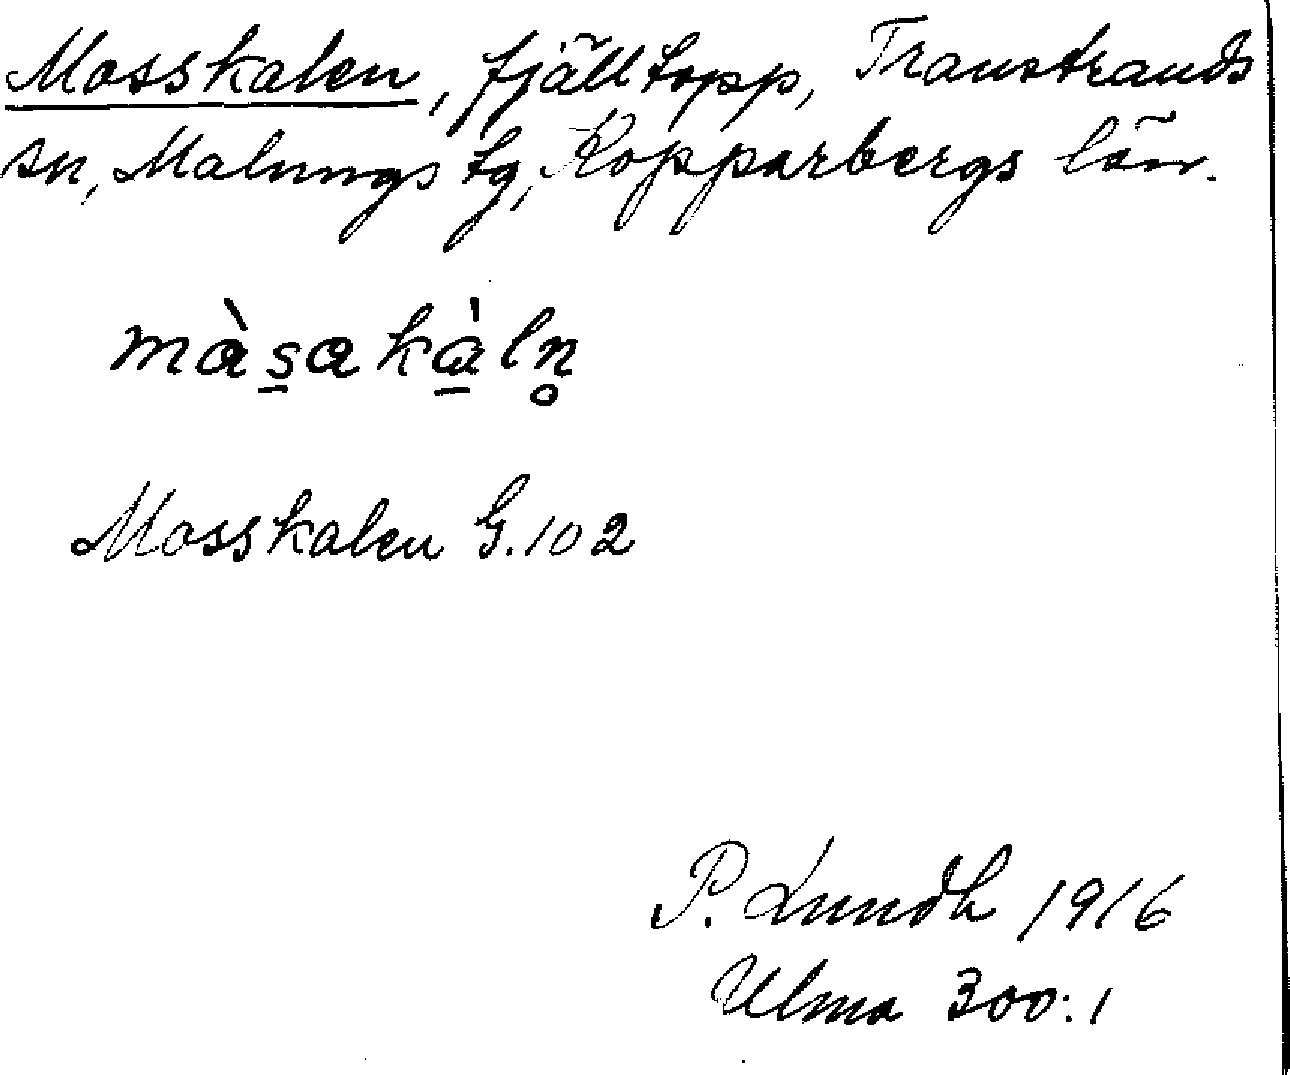 Mosskalen, fjälltopp, Transtrands
sn, Malungs tg, Kopparbergs län.
màs̱akà̱ln̥
Mosskalen G.102
P. Lundh 1916
Ulma 300:1